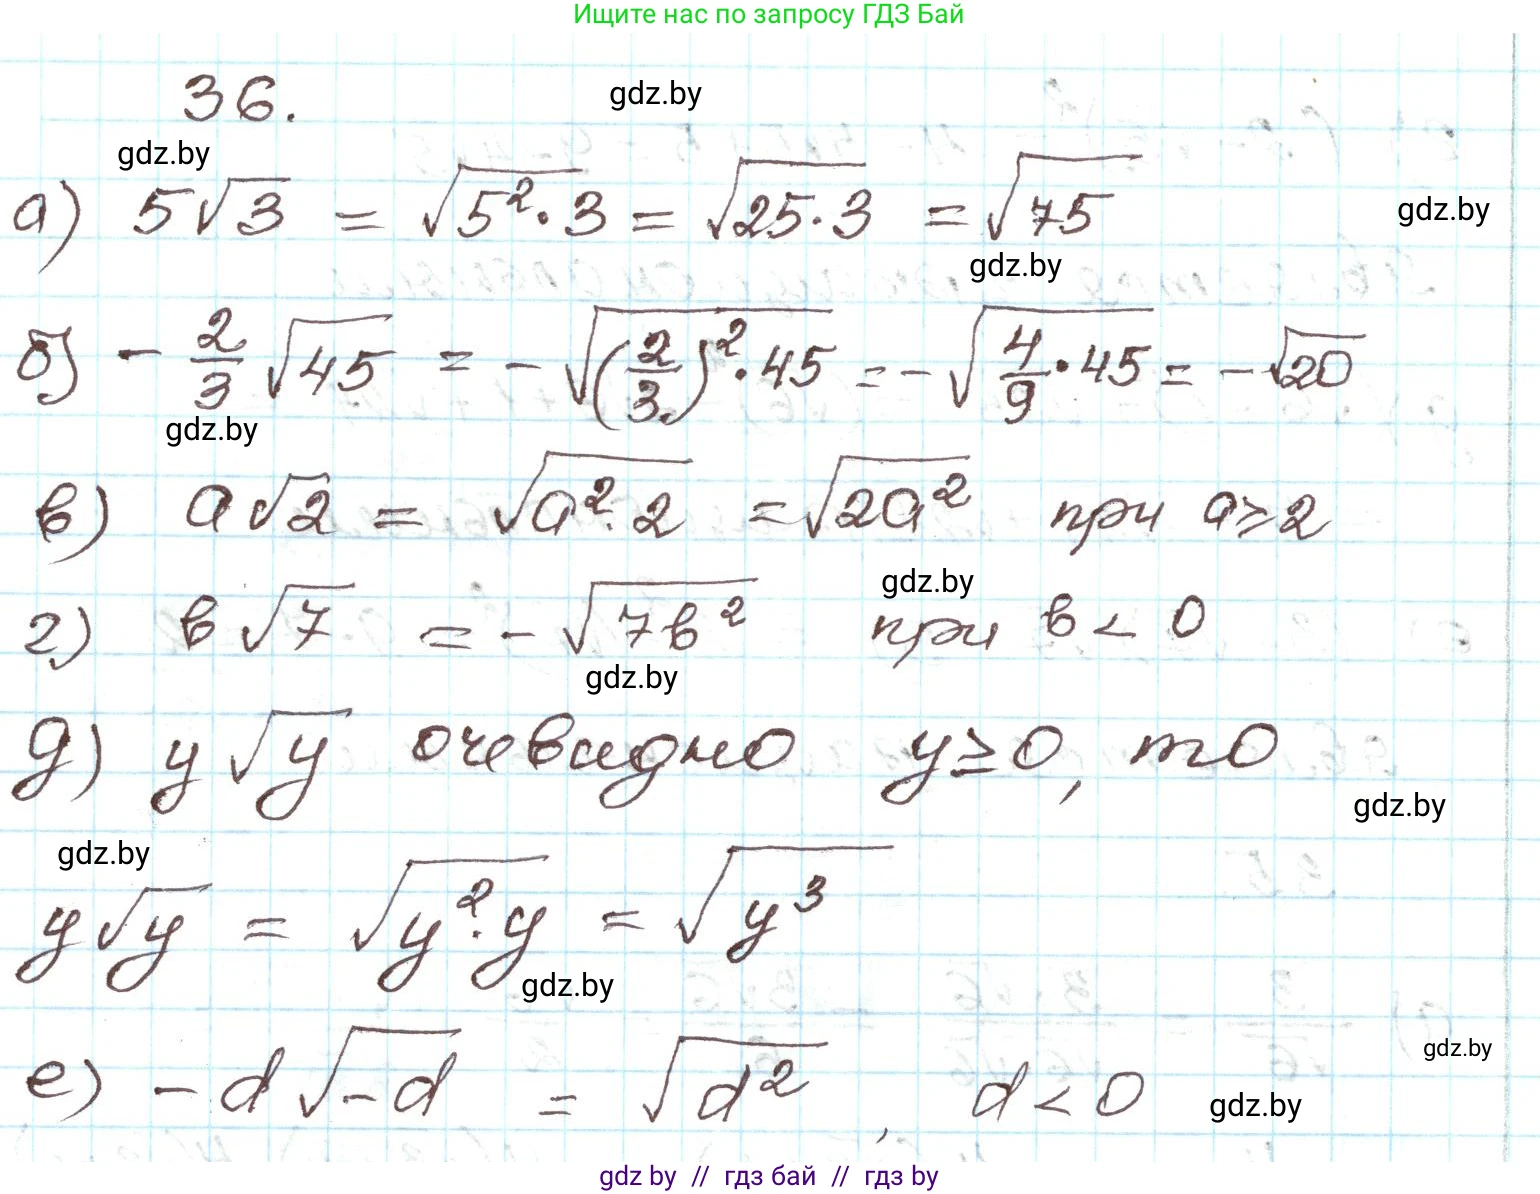 Ищите нас по запросу ГДЗ Бай
36.
gdz.by
gdz.by
а) 5√3 = √(5²·3) = √(25·3) = √75
gdz.by
gdz.by
б) -2/3 √45 = -√((2/3)²·45) = -√(4/9·45) = -√20
gdz.by
в) a√2 = √(a²·2) = √(2a²) при a≥2
gdz.by
г) в√7 = -√(7в²) при в < 0
gdz.by
д) y√y очевидно y≥0, то
gdz.by
gdz.by
y√y = √(y²·y) = √(y³)
gdz.by
gdz.by
е) -d√(-d) = √(d²), d < 0
gdz.by
gdz by // гдз бай // гдз by